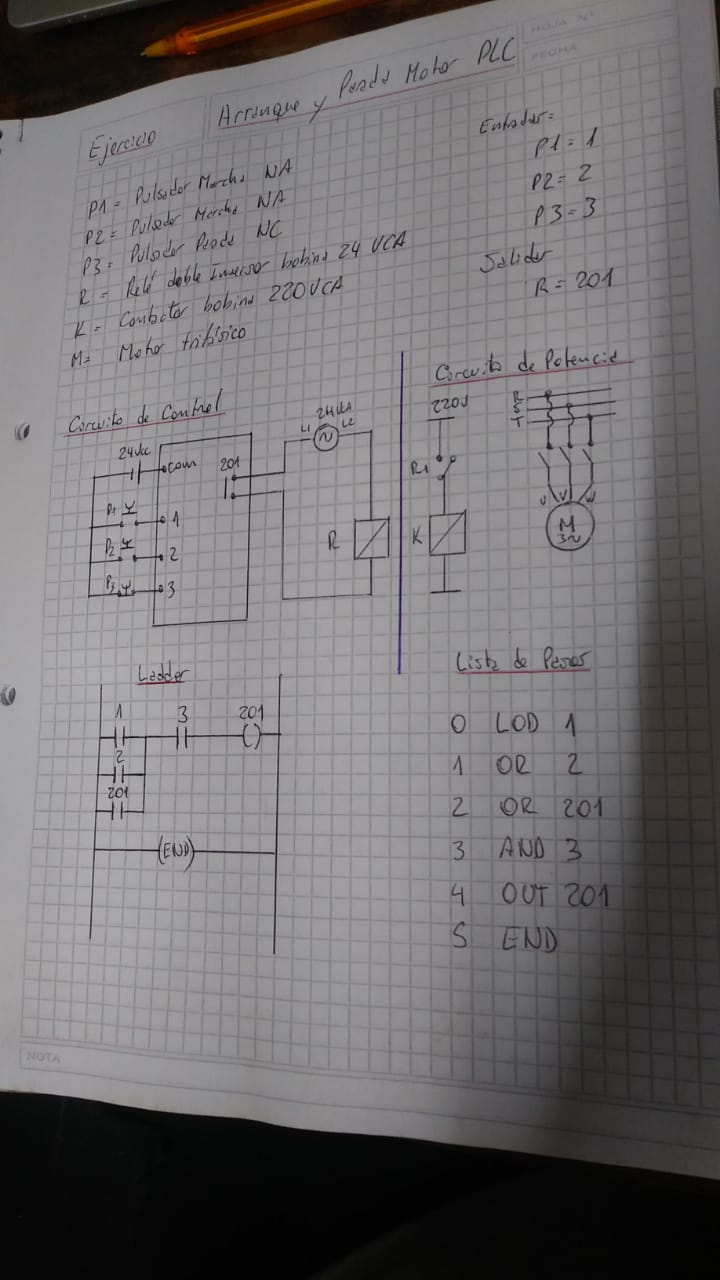 HOJA Nº
FECHA
Ejercicio
Arranque y Parada Motor PLC
P1 = Pulsador Marcha NA
P2 = Pulsador Marcha NA
P3 = Pulsador Parada NC
R = Relé doble Inversor bobina 24 VCA
K = Contactor bobina 220VCA
M= Motor trifásico
Entradas=
P1= 1
P2= 2
P3=3
Salidas
R= 201
Circuito de Control
24Vcc
com
201
P1
1
P2
2
P3
3
24Va
L1
L2
R
Circuito de Potencia
220V
R1
K
R
S
T
U
V
W
M
3~
Ladder
1
3
201
2
201
(END)
Lista de Pasos
0 LOD 1
1 OR 2
2 OR 201
3 AND 3
4 OUT 201
5 END
NOTA